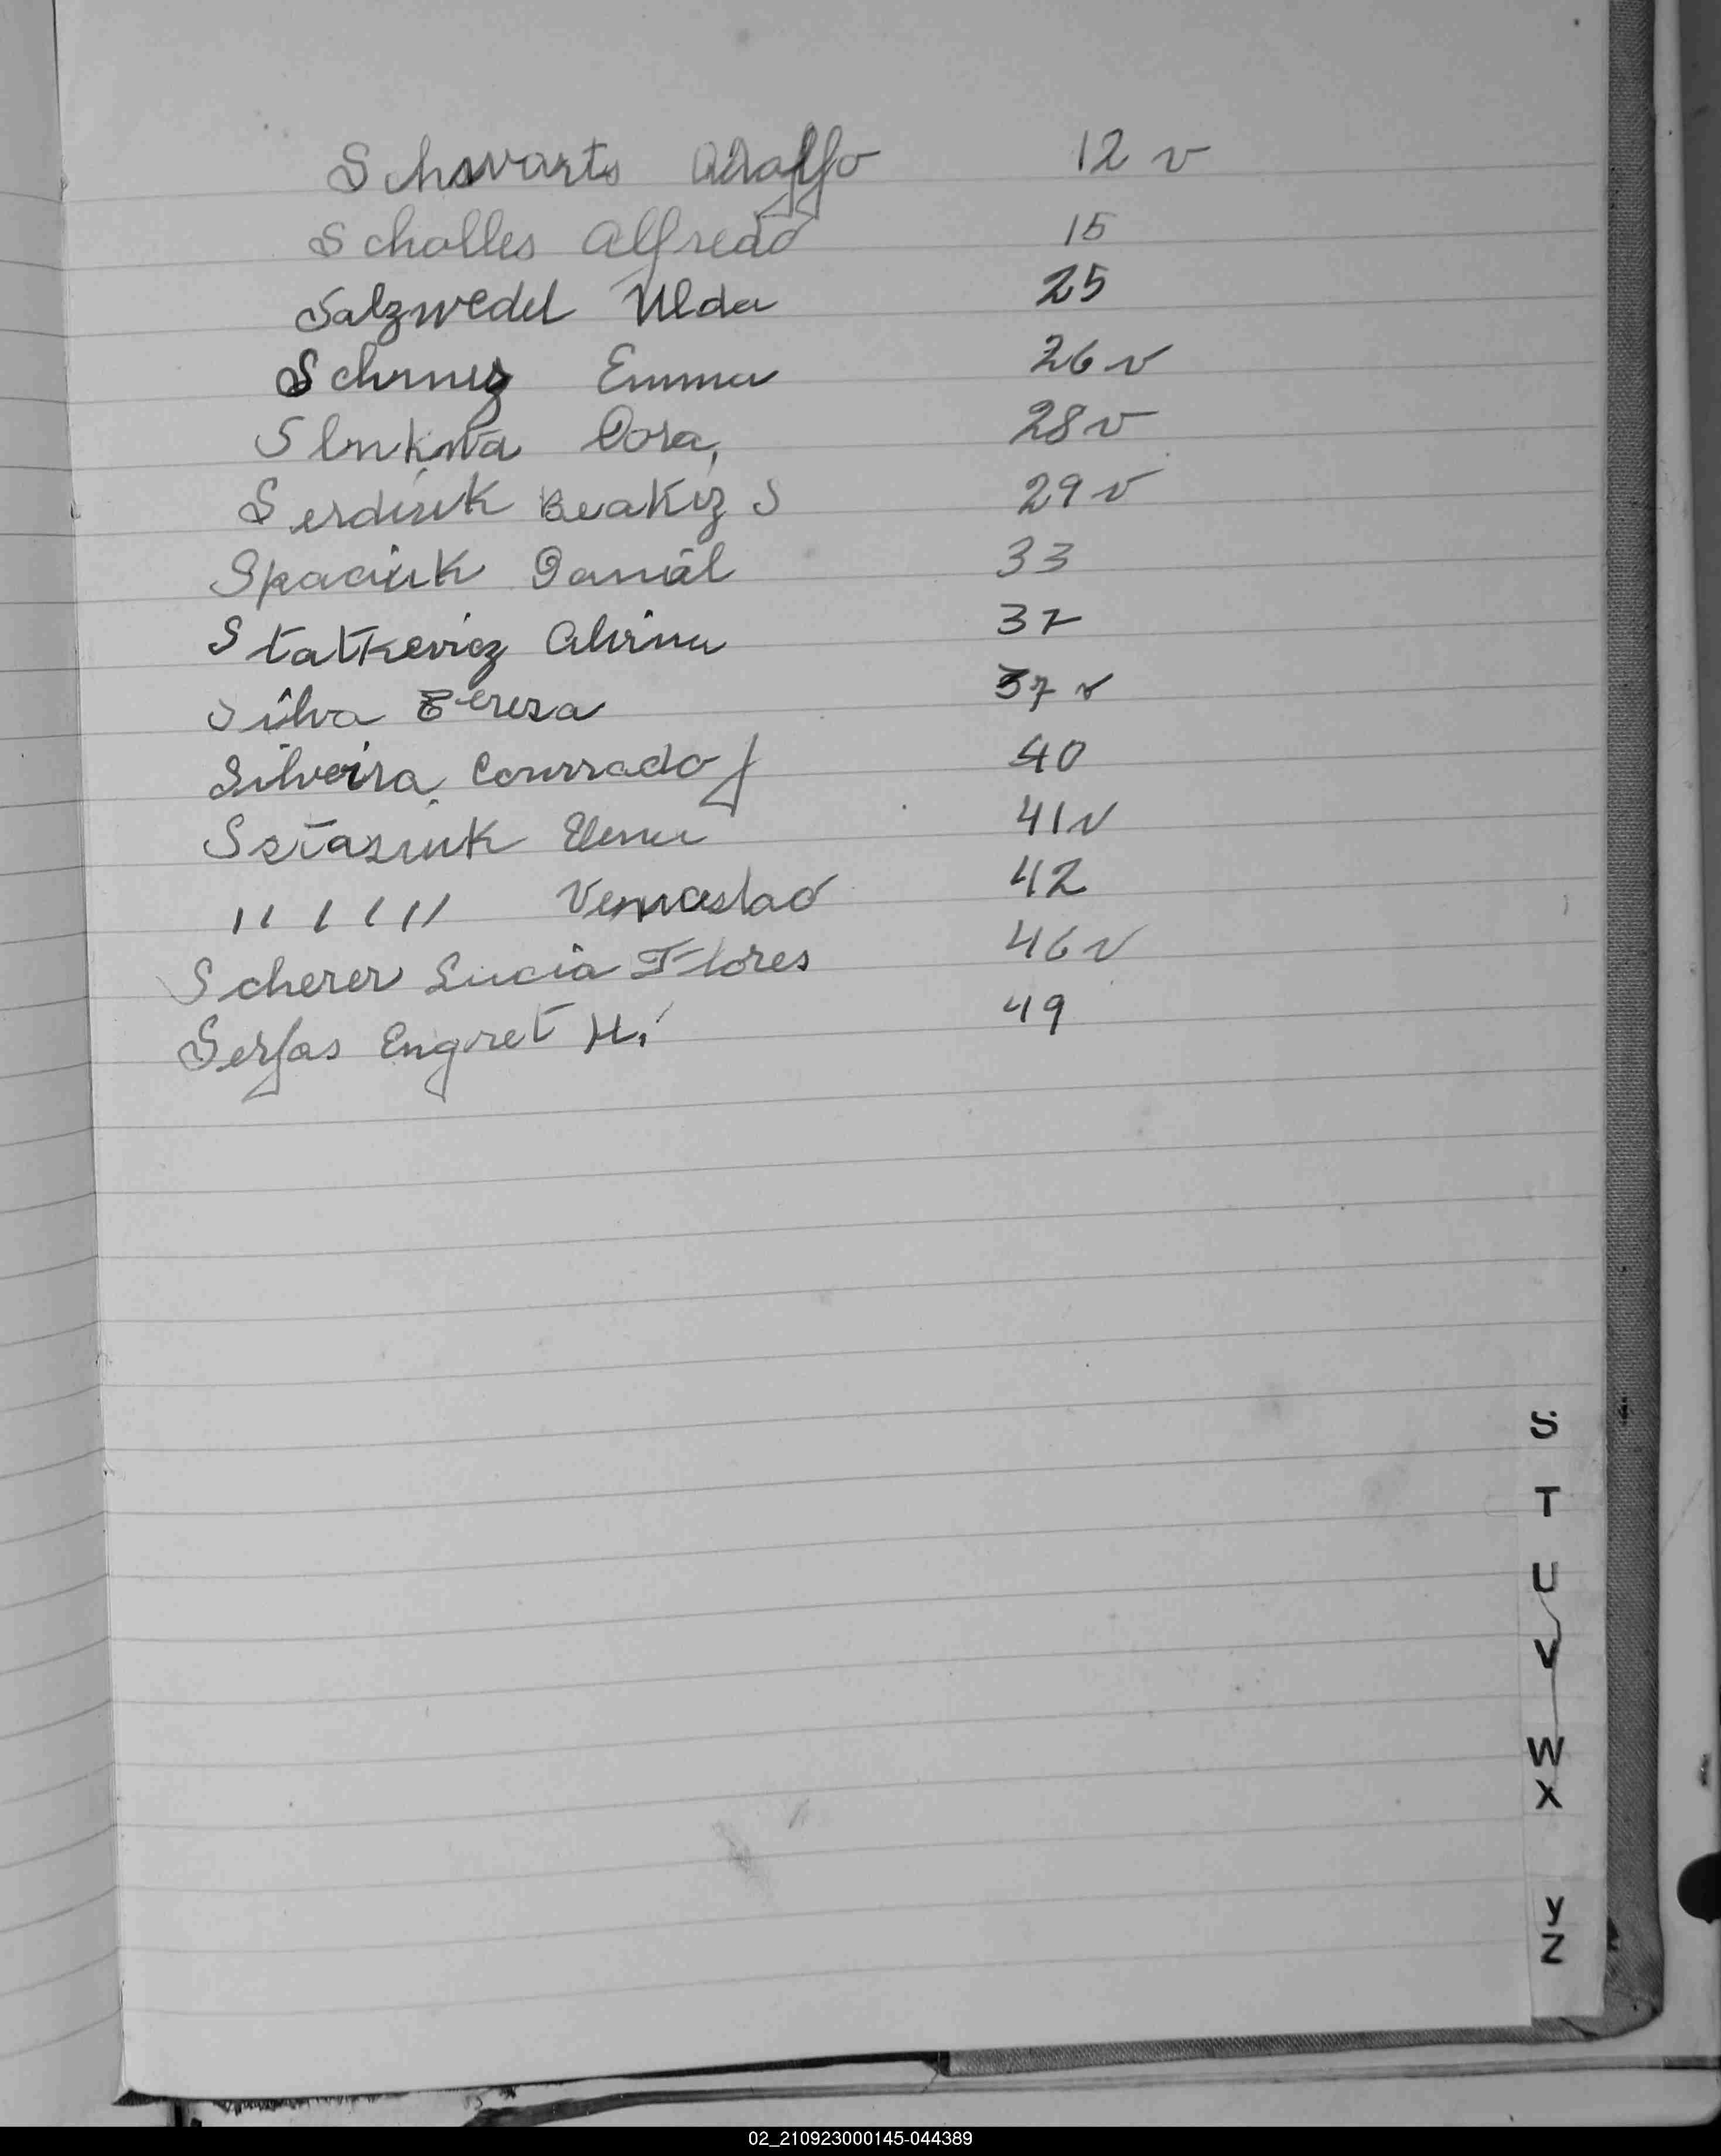 Schwarts Adolfo 12 v
Scholles Alfredo 15
Salzwedel Ulda 25
Schmiz Emma 26 v
Cora, 28 v
Serdiuk Beatriz S 29 v
Spaciuk Daniel 33
Statkevicz Alvina 37
Silva Tereza 37 v
Silveira Conrrado J 40
Sztasiuk Elena 41 v
" " " Venceslao 42
Scherer Lucia Flores 46 v
Serfas Engret H. 49
S
T
U
V
W
X
Y
Z
02_210923000145-044389